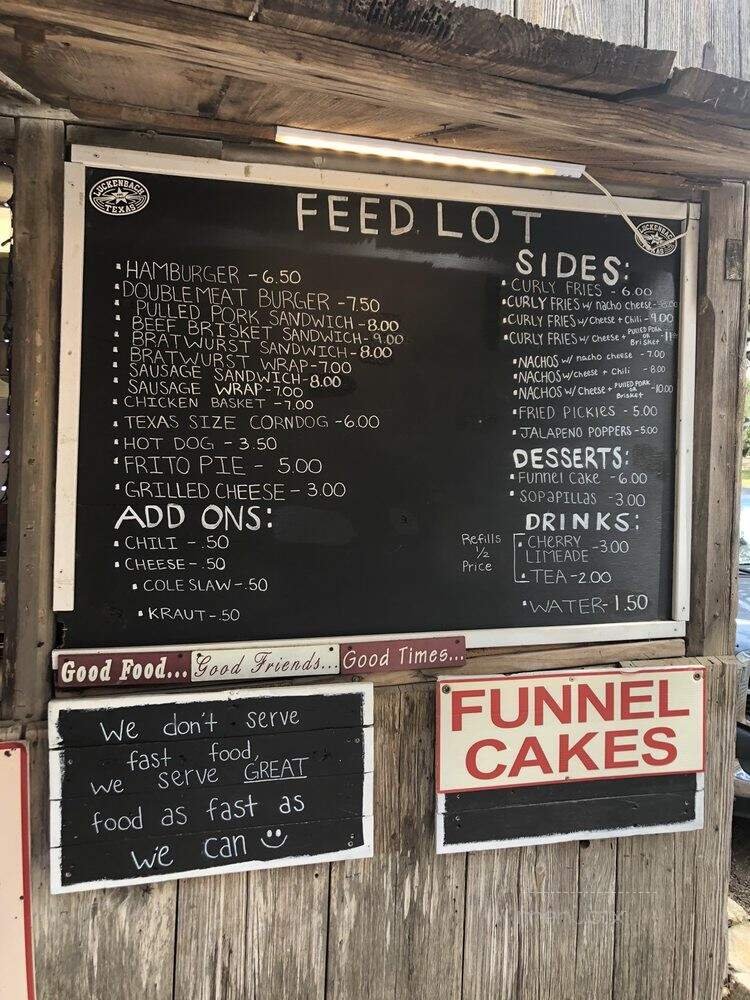 LUCKENBACH
TEXAS
LUCKENBACH
TEXAS
FEED LOT
HAMBURGER - 6.50
DOUBLEMEAT BURGER - 7.50
PULLED PORK SANDWICH - 8.00
BEEF BRISKET SANDWICH - 9.00
BRATWURST SANDWICH - 8.00
BRATWURST WRAP - 7.00
SAUSAGE SANDWICH - 8.00
SAUSAGE WRAP - 7.00
CHICKEN BASKET - 7.00
TEXAS SIZE CORNDOG - 6.00
HOT DOG - 3.50
FRITO PIE - 5.00
GRILLED CHEESE - 3.00
ADD ONS:
CHILI - .50
CHEESE - .50
COLE SLAW - .50
KRAUT - .50
SIDES:
CURLY FRIES - 6.00
CURLY FRIES w/ nacho cheese -
CURLY FRIES w/ Cheese + Chili - 9.00
CURLY FRIES w/ Cheese + PULLED PORK OR Brisket -
NACHOS w/ nacho cheese - 7.00
NACHOS w/ cheese + Chili - 8.00
NACHOS w/ Cheese + PULLED PORK OR Brisket - 10.00
FRIED PICKLES - 5.00
JALAPENO POPPERS - 5.00
DESSERTS:
Funnel Cake - 6.00
SOPAPILLAS - 3.00
DRINKS:
Refills
1/2
Price
CHERRY
LIMEADE - 3.00
TEA - 2.00
WATER - 1.50
Good Food... Good Friends... Good Times...
We don't serve
fast food,
we serve GREAT
food as fast as
we can
FUNNEL
CAKES